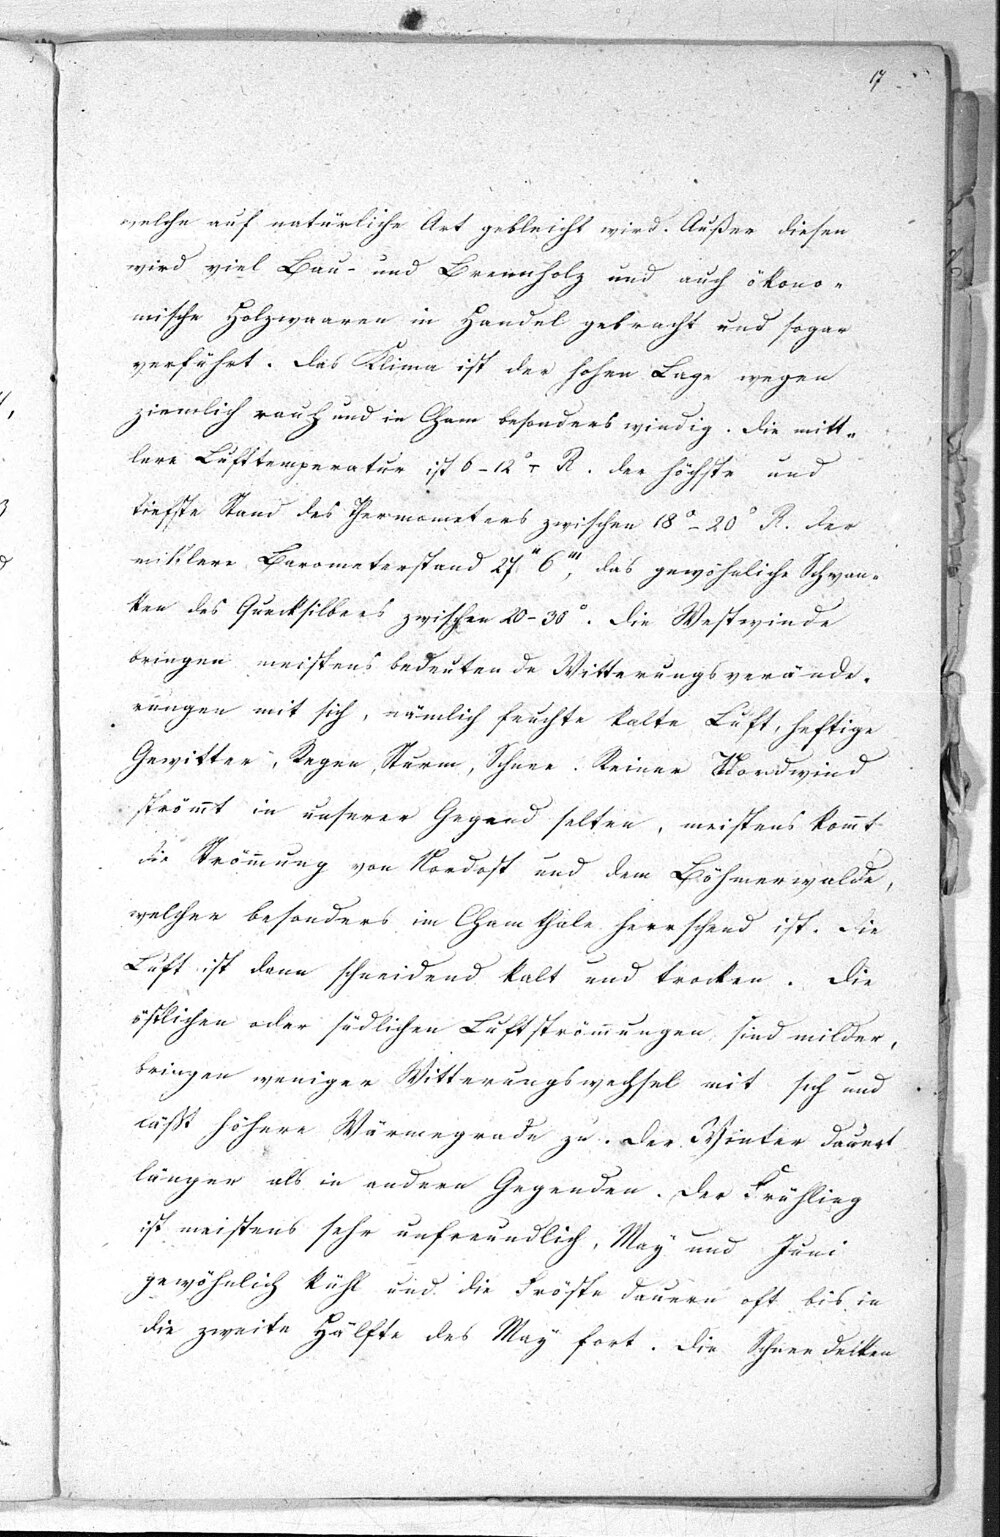 17
welche auf natürliche Art gebleicht wird. Außer diesen
wird viel Bau- und Brennholz und auch ökono-
mische Holzwaaren in Handel gebracht und sogar
verführt. Das Klima ist der hohen Lage wegen
ziemlich rauh und in Cham besonders windig. Die mitt-
lere Lufttemperatur ist 6-12° + R. der höchste und
tiefste Stand des Thermometers zwischen 18°-20° R. der
mittlere Barometerstand 27" 6''', das gewöhnliche Schwan-
ken des Quecksilbers zwischen 20-30°. Die Westwinde
bringen meistens bedeutende Witterungsverände-
rungen mit sich, nämlich feuchte kalte Luft, heftige
Gewitter, Regen, Sturm, Schnee. Reiner Nordwind
strömt in unserer Gegend selten, meistens komt
die Strömung von Nordost und dem Böhmerwalde,
welcher besonders im Chamthale herrschend ist. Die
Luft ist dann schneidend kalt und trocken. Die
östlichen oder südlichen Luftströmungen sind milder,
bringen weniger Witterungswechsel mit sich und
läßt höhere Wärmegrade zu. Der Winter dauert
länger als in andern Gegenden. Der Frühling
ist meistens sehr unfreundlich, May und Juni
gewöhnlich kühl und die Fröste dauern oft bis in
die zweite Hälfte des May fort. Die Schneedecken